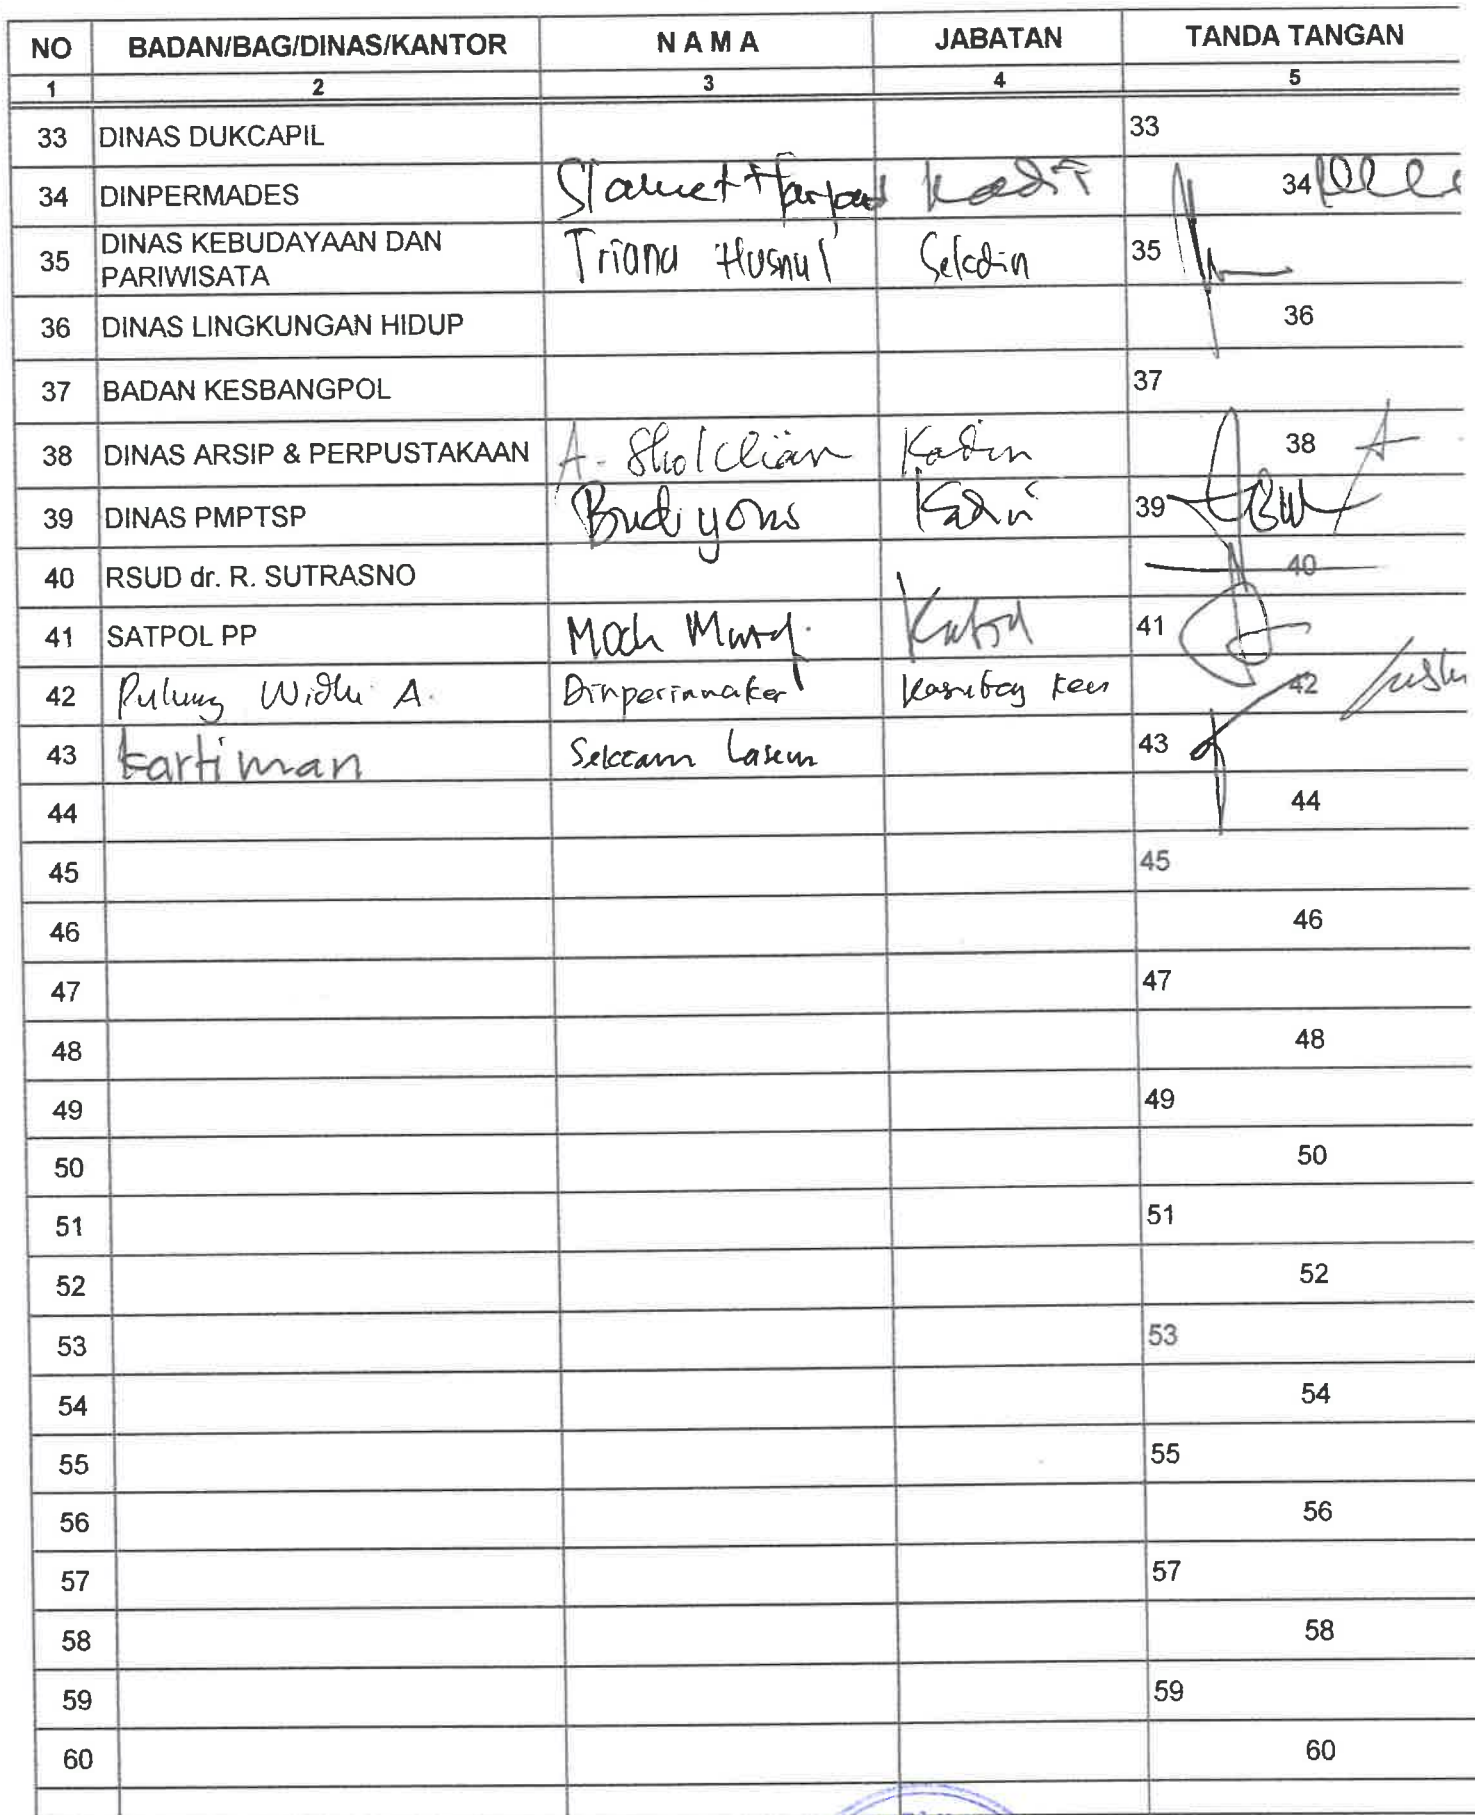 NO BADAN/BAG/DINAS/KANTOR N A M A JABATAN TANDA TANGAN
1 2 3 4 5
33 DINAS DUKCAPIL 33
34 DINPERMADES Slamet 34
35 DINAS KEBUDAYAAN DAN PARIWISATA Triana Husnul Sekdin 35
36 DINAS LINGKUNGAN HIDUP 36
37 BADAN KESBANGPOL 37
38 DINAS ARSIP & PERPUSTAKAAN A. Kadin 38
39 DINAS PMPTSP Budiyono Kadin 39
40 RSUD dr. R. SUTRASNO 40
41 SATPOL PP Moch 41
42 Pulung Widhi A. Dinperinnaker Kasubag Keu 42
43 Kartiman Sekcam Lasem 43
44 44
45 45
46 46
47 47
48 48
49 49
50 50
51 51
52 52
53 53
54 54
55 55
56 56
57 57
58 58
59 59
60 60